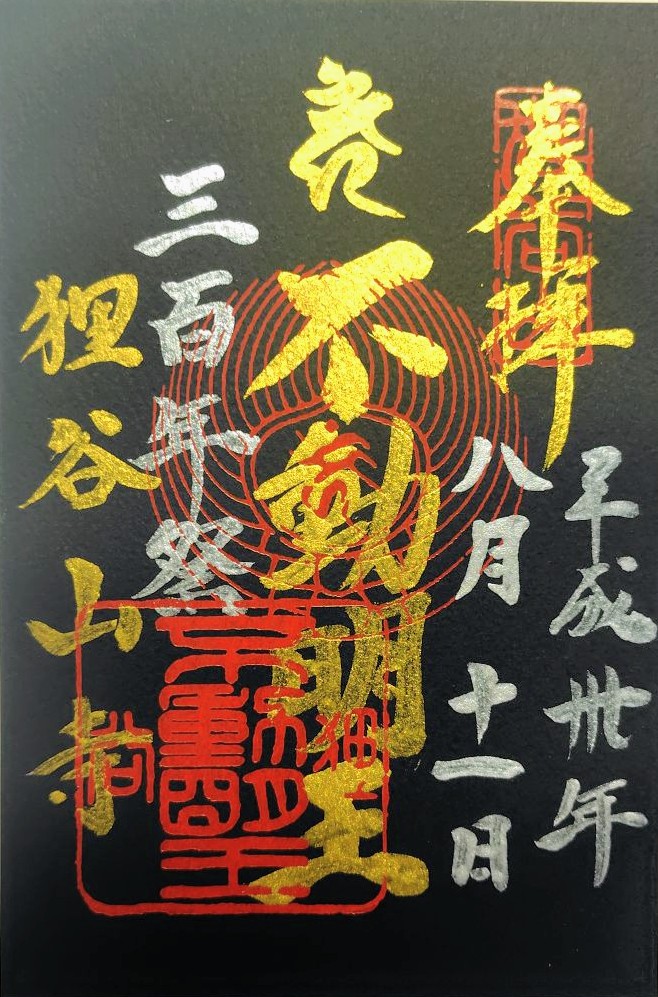 奉拝
平成卅年
八月十一日
不動明王
三百年祭
狸谷山寺